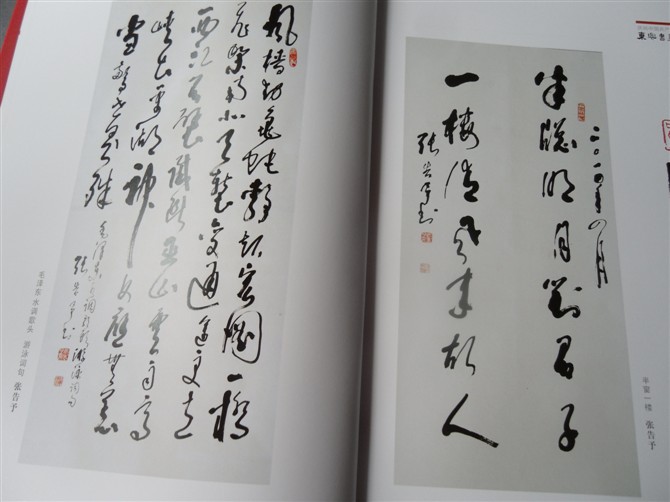 风樯动龟蛇静起宏图一桥
飞架南北天堑变通途更立
西江石壁截断巫山云雨高
峡出平湖神女应無恙
当惊世界殊
毛泽东水调歌头游泳词句
张告予书
毛泽东 水调歌头 游泳词句 张告予
二〇一〇年四月
半窗明月對君子
一楼清风来故人
张告予书
半窗一楼 张告予